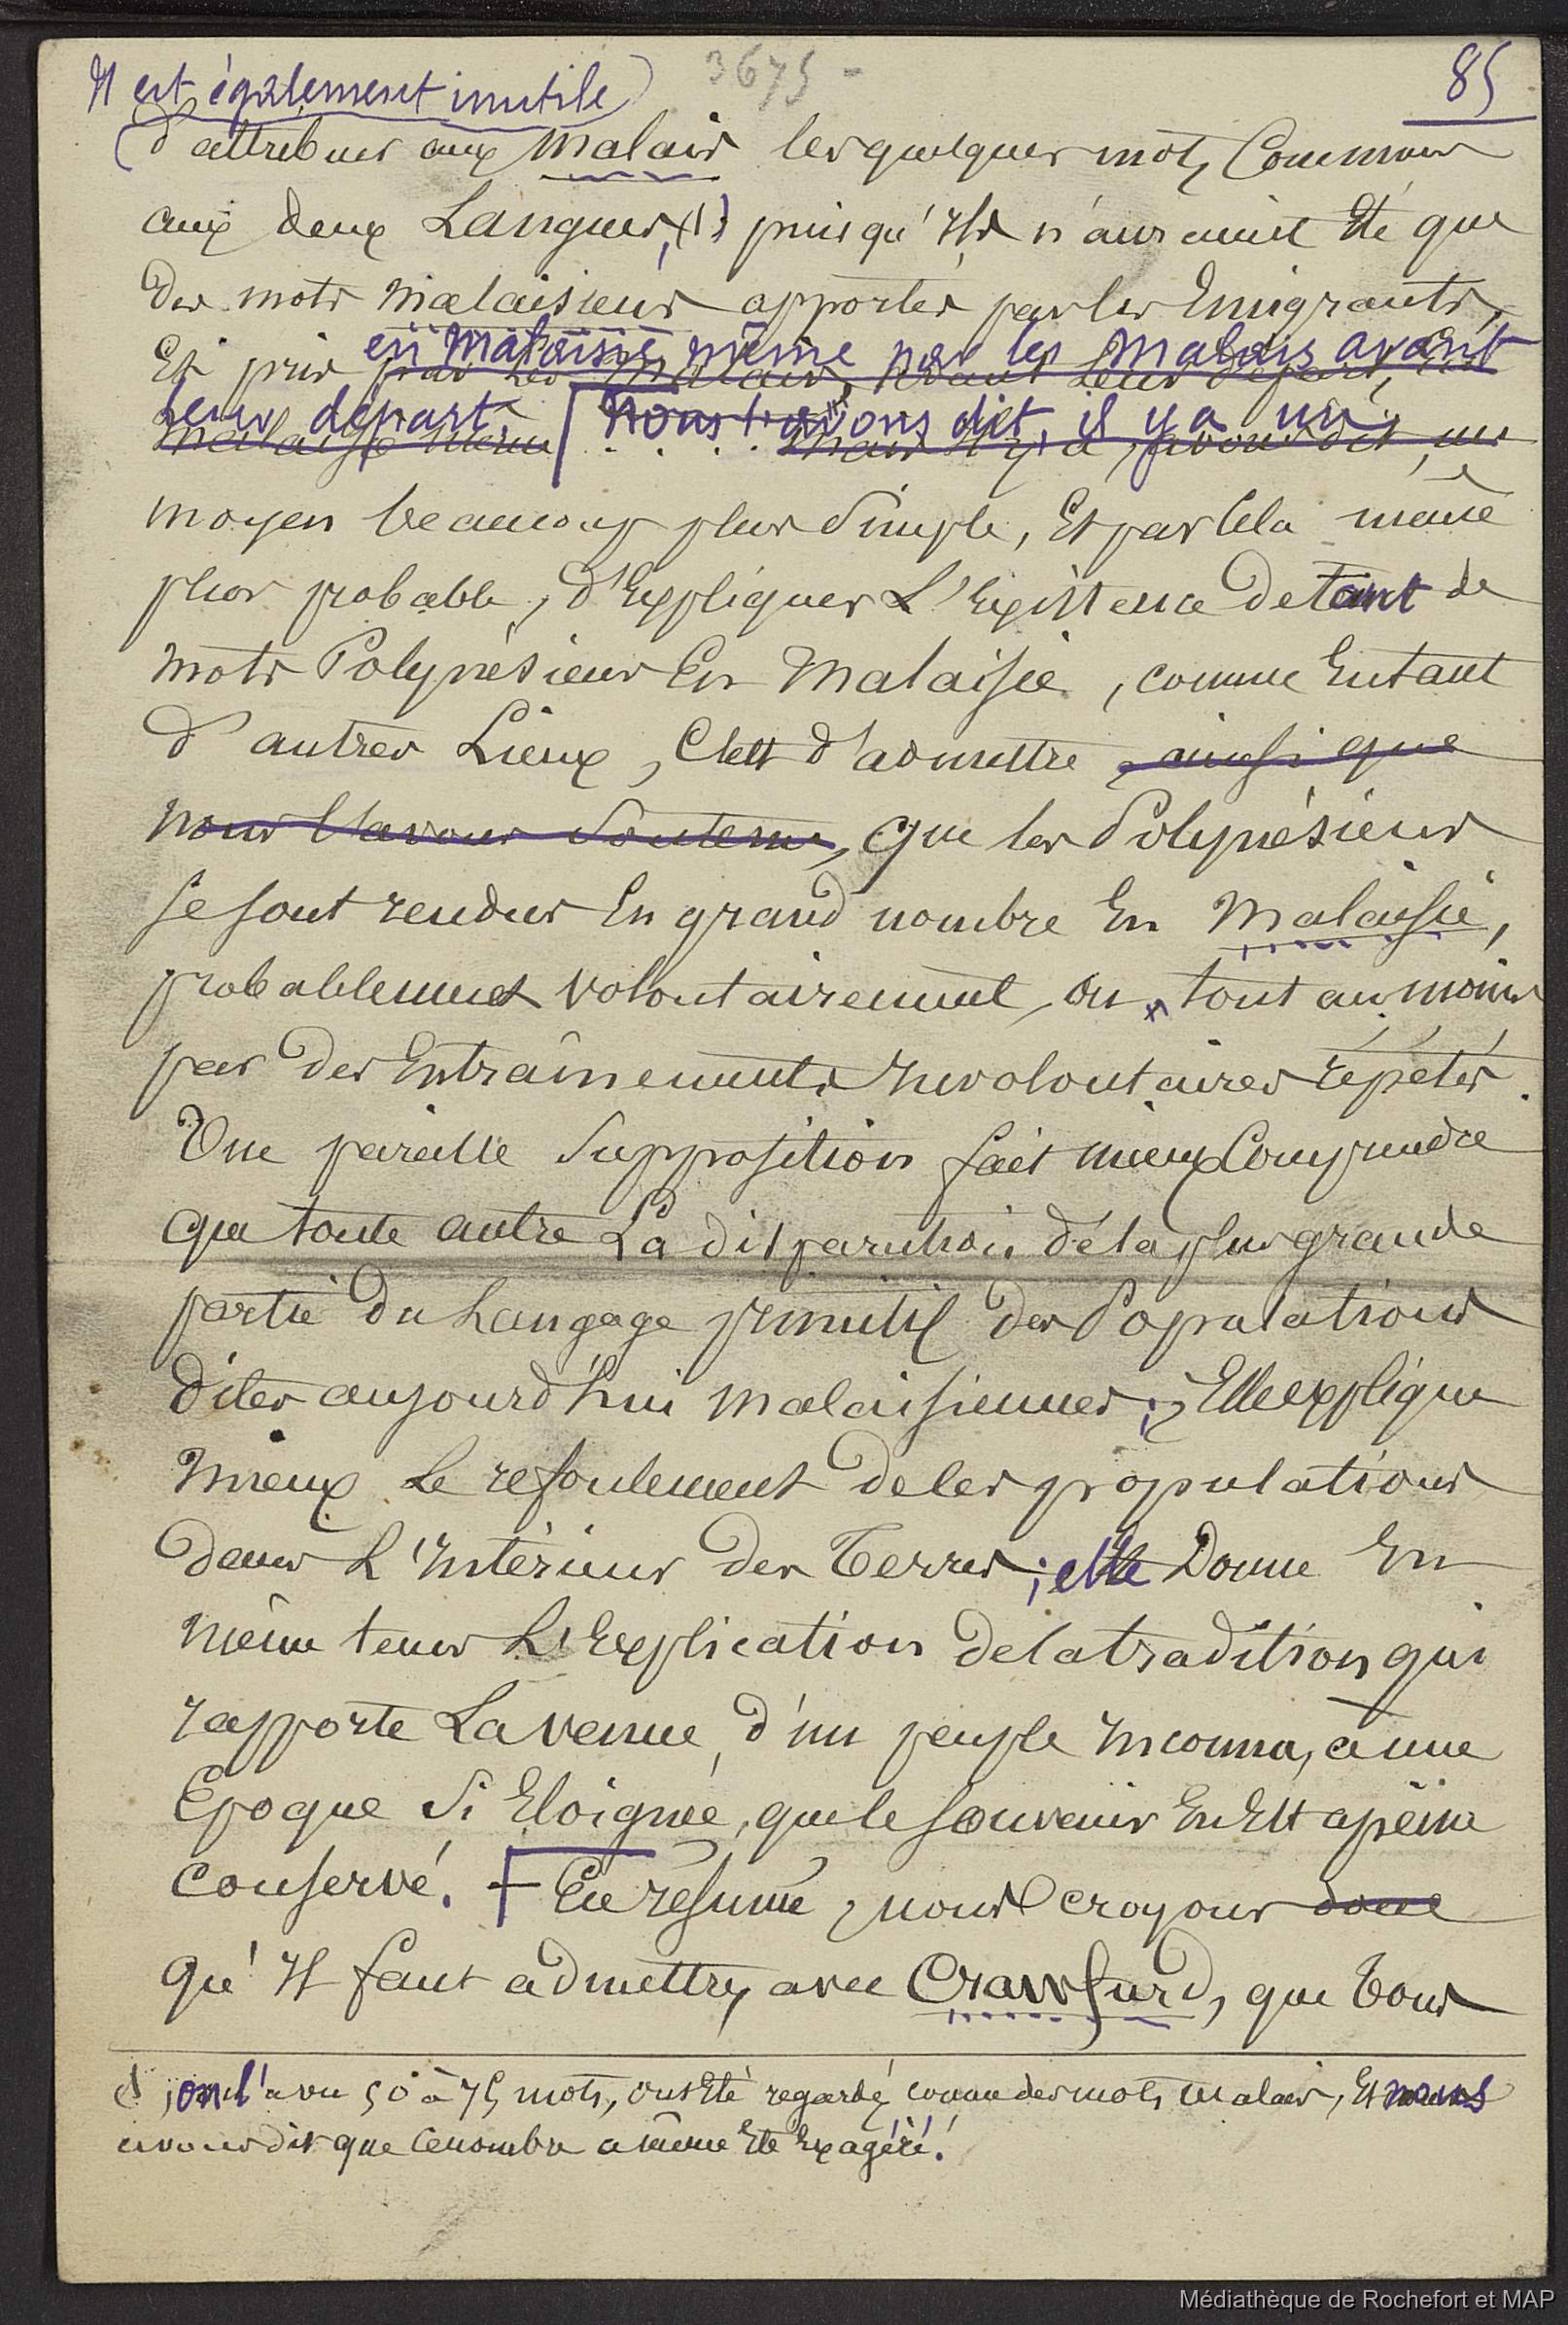 3675 -
85
Il est également inutile
d'attribuer aux Malais les quelques mots communs
aux deux Langues, (1) puisqu'Ils n'auraient Eté que
des mots Malaisiens apportés par les Emigrants,
Et pris par les Malais, avant leur départ, En
en Malaisie même par les Malais avant
Malaisie même . . . . Mais il y a, avons dit, un
leur départ. Nous l'avons dit, il y a un
moyen beaucoup plus simple, Et par Cela même
plus probable, d'Expliquer L'Existence de tant de
mots Polynésiens En Malaisie, comme En tant
d'autres Lieux, C'est d'admettre, ainsi que
nous l'avons soutenu, que les Polynésiens
se sont rendus En grand nombre En Malaisie,
probablement volontairement, ou, tout au moins
par des Entraînements Involontaires répétés.
Une pareille supposition fait mieux Comprendre
que toute autre La disparution de la plus grande
partie du Langage primitif des Populations
dites aujourd'hui Malaisiennes; Elle explique
mieux Le refoulement de ces populations
dans L'Intérieur des Terres; elle Donne En
même tems L'Explication de la tradition qui
rapporte La venue, d'un peuple Inconnu, à une
Epoque si Eloignée, que le souvenir En Est à peine
conservé. En résumé, nous croyons donc
qu'Il faut admettre, avec Crawfurd, que tous
on l'a vu 50 à 75 mots, ont Eté regardés comme des mots malais, Et nous
avons dit que ce nombre a même Eté Exagéré.
Médiathèque de Rochefort et MAP